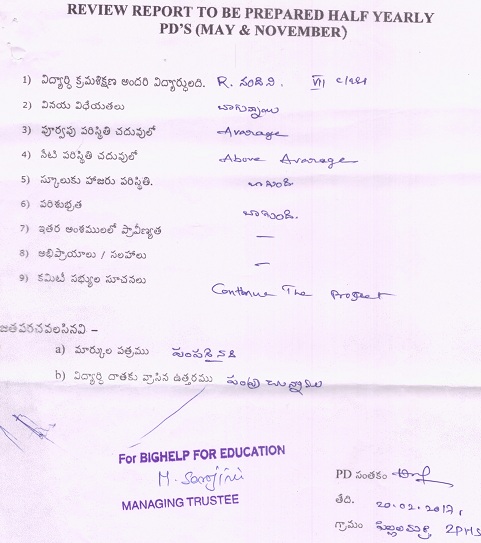 REVIEW REPORT TO BE PREPARED HALF YEARLY
PD'S (MAY & NOVEMBER)
1) విద్యార్థి క్రమశిక్షణ అందరి విద్యార్థులది. R. నందిని. VII class
2) వినయ విధేయతలు బాగున్నాయి
3) పూర్వపు పరిస్థితి చదువులో Avarage
4) నేటి పరిస్థితి చదువులో Above Avarage
5) స్కూలుకు హాజరు పరిస్థితి. బాగుంది
6) పరిశుభ్రత బాగుంది.
7) ఇతర అంశములలో ప్రావీణ్యత —
8) అభిప్రాయాలు / సలహాలు —
9) కమిటీ సభ్యుల సూచనలు Continue The Project
జతపరచవలసినవి –
a) మార్కుల పత్రము పంపడమైనది
b) విద్యార్థి దాతకు వ్రాసిన ఉత్తరము పంపుచున్నాము
For BIGHELP FOR EDUCATION
M. Sarojini
MANAGING TRUSTEE
PD సంతకం
తేది. 20.02.2017.
గ్రామం ZPHS